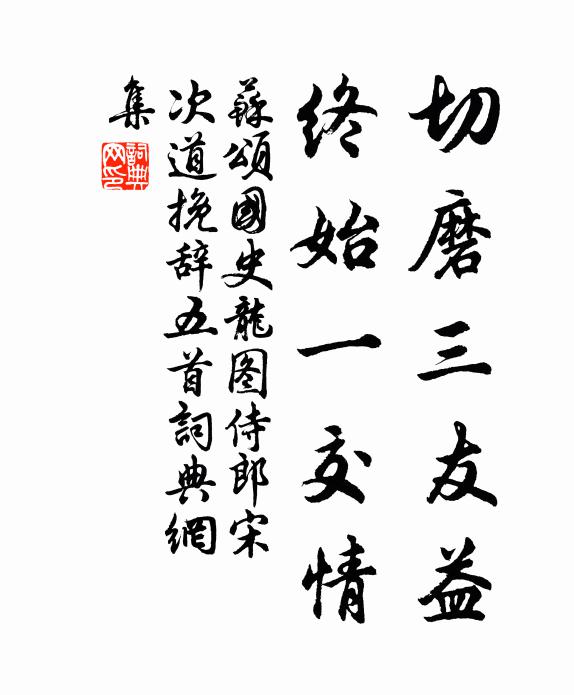 切磨三友益
終始一交情
蘇頌國史龍图侍郎宋
次道挽辞五首詞典網
集
詞典
网印